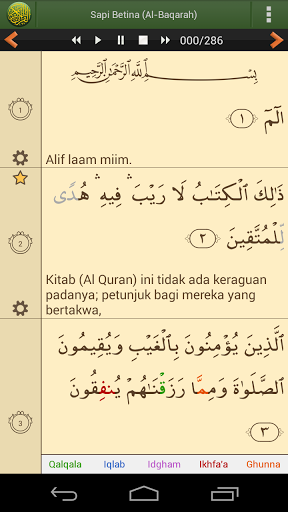 Sapi Betina (Al-Baqarah)
000/286
بِسْمِ ٱللَّهِ ٱلرَّحْمَٰنِ ٱلرَّحِيمِ
1
الٓمٓ ١
Alif laam miim.
2
ذَٰلِكَ ٱلْكِتَابُ لَا رَيْبَ ۛ فِيهِ ۛ هُدًى
لِّلْمُتَّقِينَ ٢
Kitab (Al Quran) ini tidak ada keraguan
padanya; petunjuk bagi mereka yang
bertakwa,
3
ٱلَّذِينَ يُؤْمِنُونَ بِٱلْغَيْبِ وَيُقِيمُونَ
ٱلصَّلَوٰةَ وَمِمَّا رَزَقْنَاهُمْ يُنفِقُونَ
٣
Qalqala Iqlab Idgham Ikhfa'a Ghunna